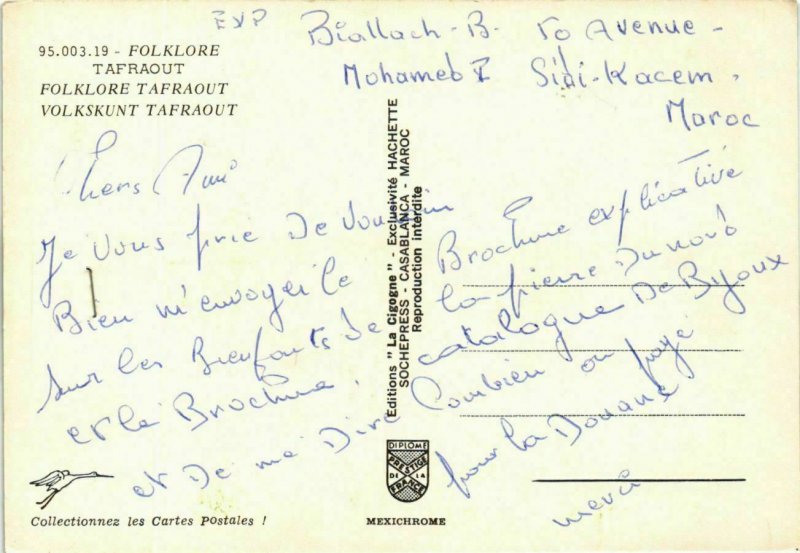 EXP Biallach-B. 50 Avenue-
Mohamed V Sidi-Kacem.
Maroc
95.003.19 - FOLKLORE
TAFRAOUT
FOLKLORE TAFRAOUT
VOLKSKUNT TAFRAOUT
Chers Ami
Je Vous prie De Vouloir
Bien m'envoyer le Brochure explicative
sur les Bienfaits de la pierre Du nord
et le Brochure catalogue De Bijoux
et De me Dire Combien on paye
pour la Douane
merci
Editions "La Cigogne" - Exclusivité HACHETTE
SOCHEPRESS - CASABLANCA - MAROC
Reproduction interdite
DIPLOME
PRESTIGE
DE LA
FRANCE
Collectionnez les Cartes Postales !
MEXICHROME